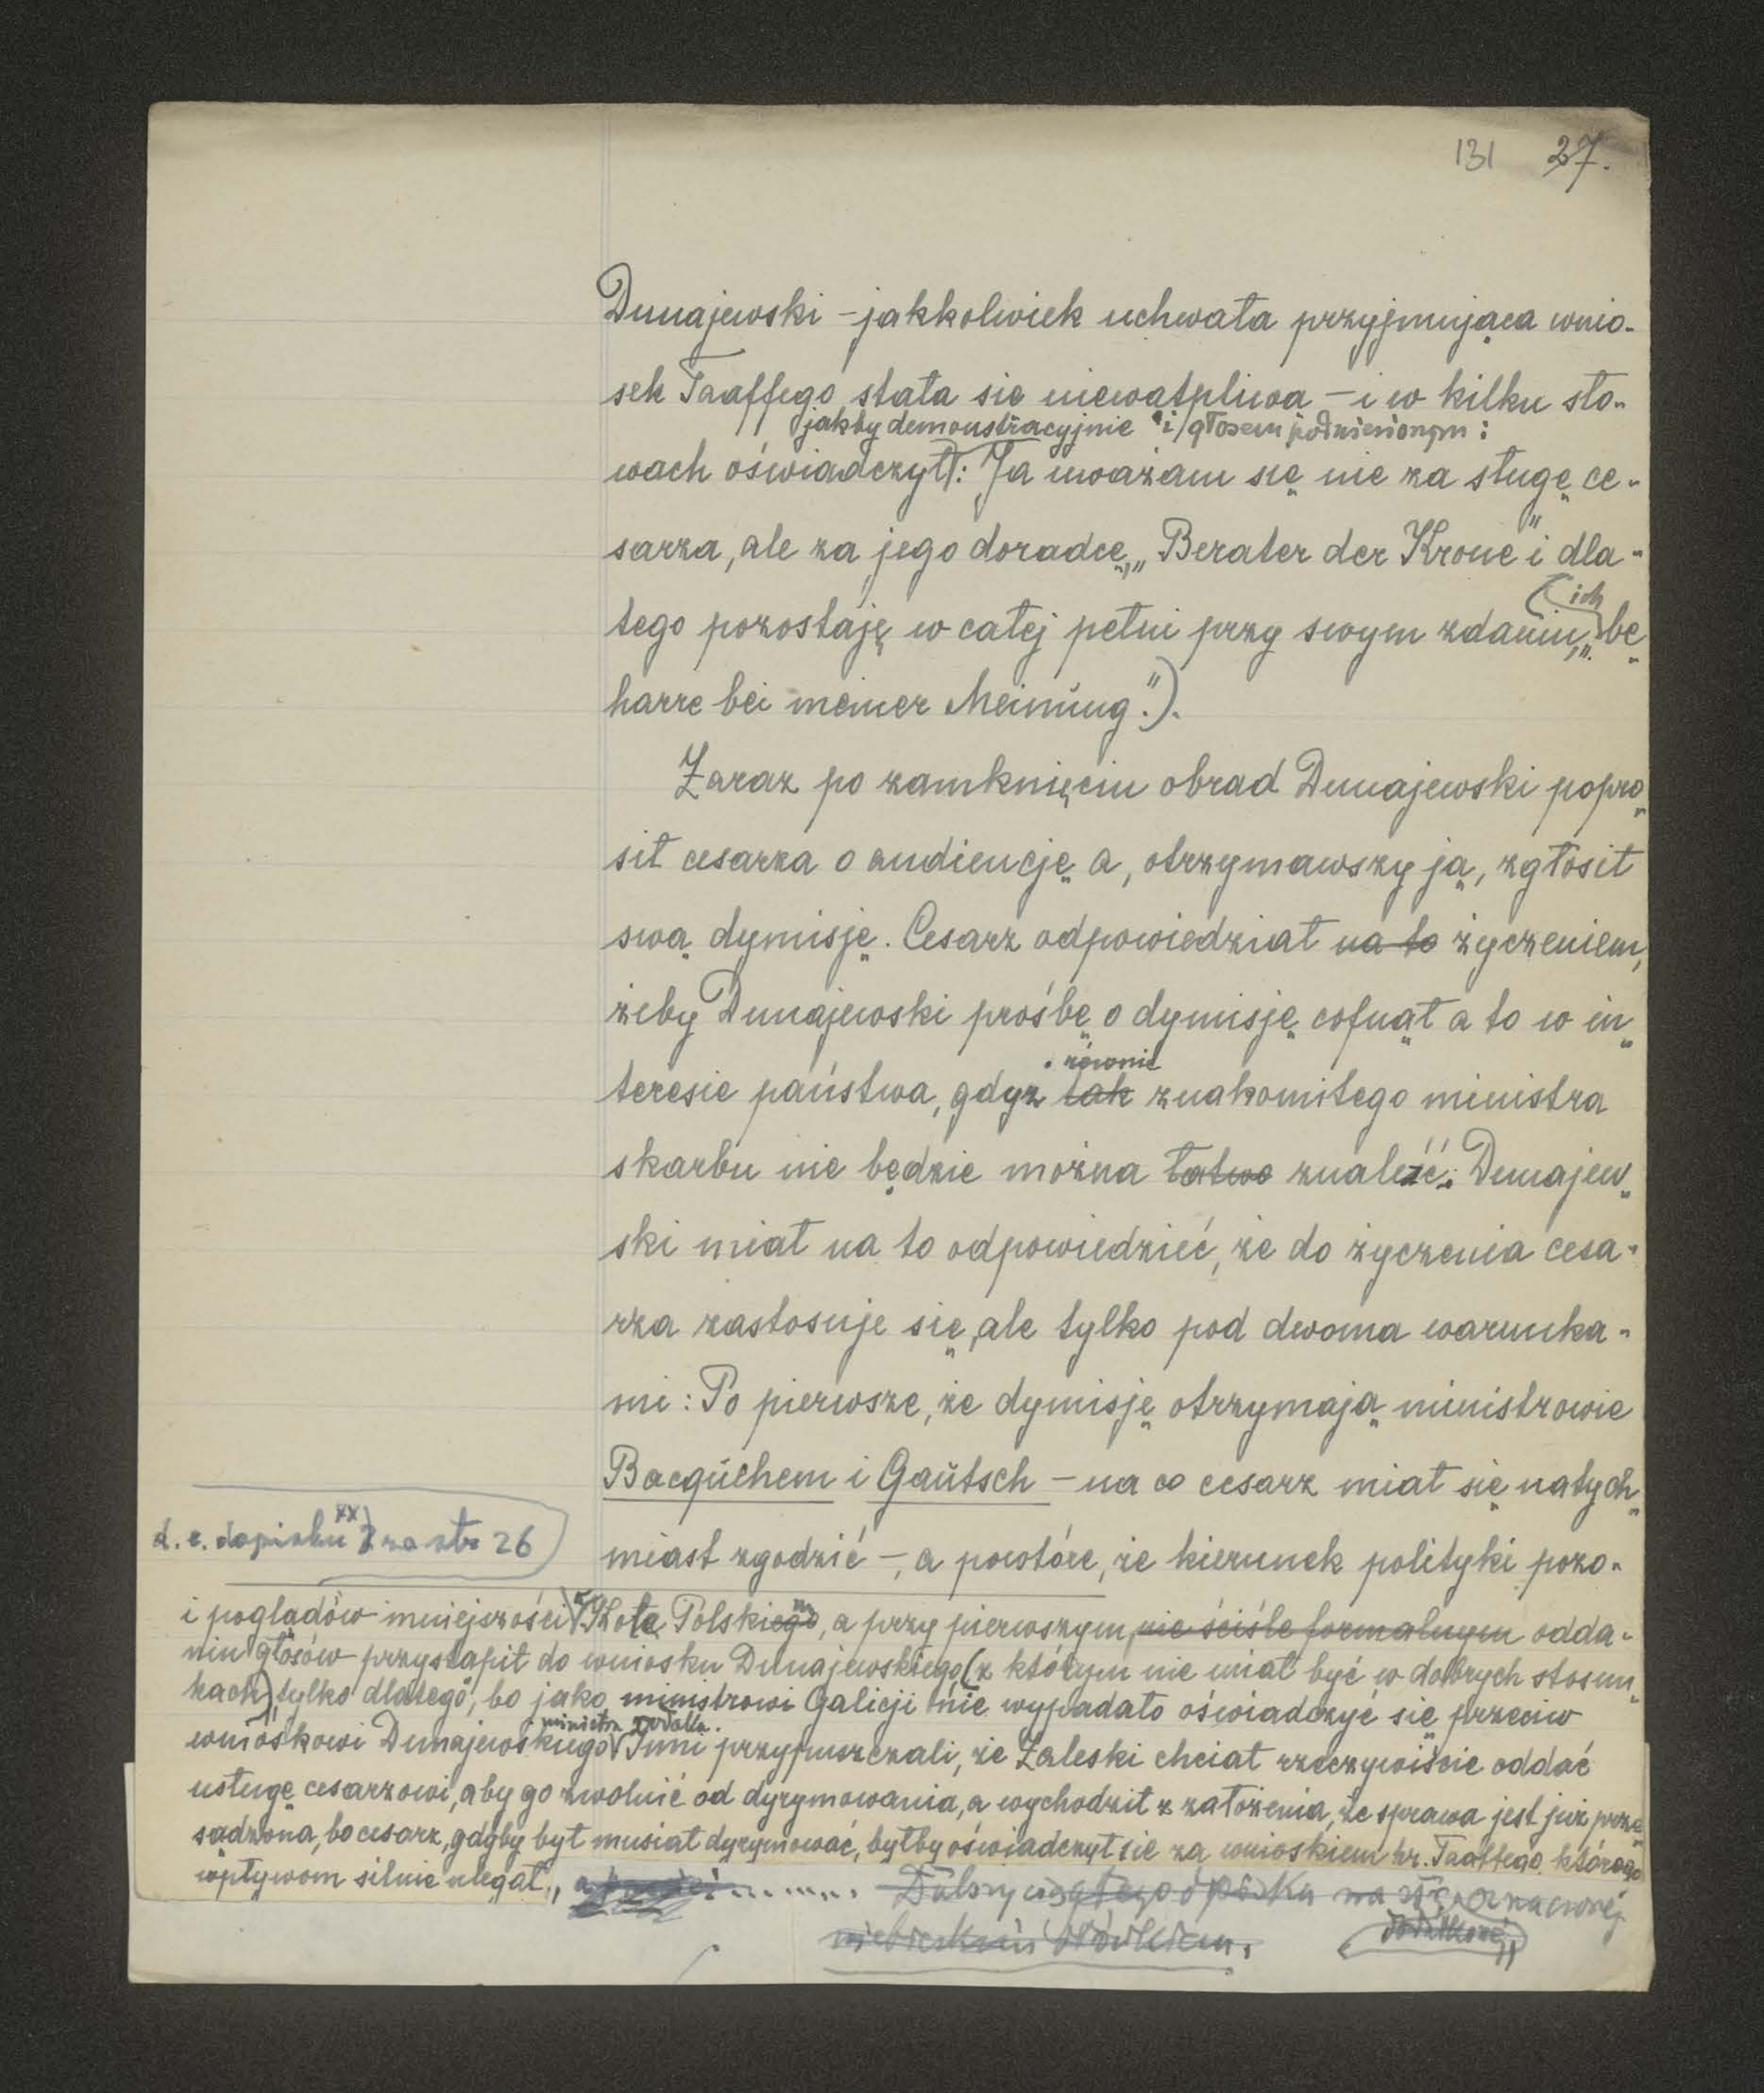 131 27.
Dunajewski – jakkolwiek uchwała przyjmująca wnio-
sek Taaffego stała się niewątpliwa – i w kilku sło-
jakby demonstracyjnie i głosem podniesionym:
wach oświadczył: Ja uważam się nie za sługę ce-
sarza, ale za jego doradcę, „Berater der Krone" i dla-
ich
tego pozostaję w całej pełni przy swym zdaniu, „be
harre bei meiner Meinung.").
Zaraz po zamknięciu obrad Dunajewski popro
sił cesarza o audiencję a, otrzymawszy ją, zgłosił
swą dymisję. Cesarz odpowiedział na to życzeniem,
żeby Dunajewski prośbę o dymisję cofnął a to w in
równie
teresie państwa, gdyż tak znakomitego ministra
skarbu nie będzie można łatwo znaleźć. Dunajew
ski miał na to odpowiedzieć, że do życzenia cesa-
rza zastosuje się, ale tylko pod dwoma warunka-
mi: Po pierwsze, że dymisję otrzymają ministrowie
Bacqúehem i Gaŭtsch – na co cesarz miał się natych
miast zgodzić –, a powtóre, że kierunek polityki pozo-
d. c. dopisku xx) ze str 26
i poglądów mniejszości Koła Polskiego, a przy pierwszym nie ściśle formalnym odda-
niu głosów przystąpił do wniosku Dunajewskiego (z którym nie miał być w dobrych stosun
kach) tylko dlatego, bo jako ministrowi Galicji nie wypadało oświadczyć się przeciw
ministra rodaka.
wnioskowi Dunajewskiego Inni przypuszczali, że Zaleski chciał rzeczywiście oddać
usługę cesarzowi, aby go zwolnić od dyrymowania, a wychodził z założenia, że sprawa jest już prze
sądzona, bo cesarz, gdyby był musiał dyrymować, byłby oświadczył się za wnioskiem hr. Taaffego, którego
wpływom silnie ulegał.
Dalszy ciąg tego dopisku na str.
niebieskim ołówkiem.